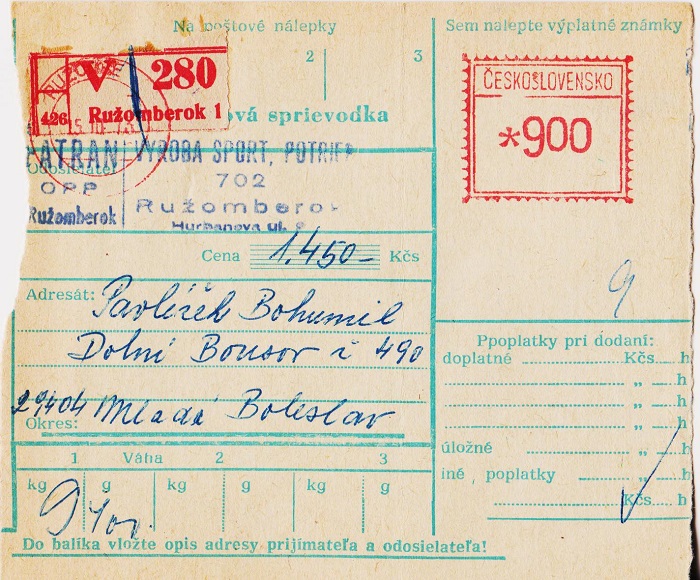 Na poštové nálepky
2 3
Sem nalepte výplatné známky
V 280
426 Ružomberok 1
ová sprievodka
ČESKOSLOVENSKO
*900
TATRAN VÝROBA ŠPORT. POTRIEB
Odosielateľ
702
OPP
Ružomberok
Ružomberok
Hurbanova ul.
Cena 1.450- Kčs
9
Adresát: Pavlíček Bohumil
Dolní Bousov č 490
29404 Mladá Boleslav
Okres:
Ppoplatky pri dodaní:
doplatné Kčs h
„ h
„ h
„ h
úložné „ h
iné poplatky „ h
Kčs h
1 Váha 2 3
kg g kg g kg g
9 400
Do balíka vložte opis adresy prijímateľa a odosielateľa!